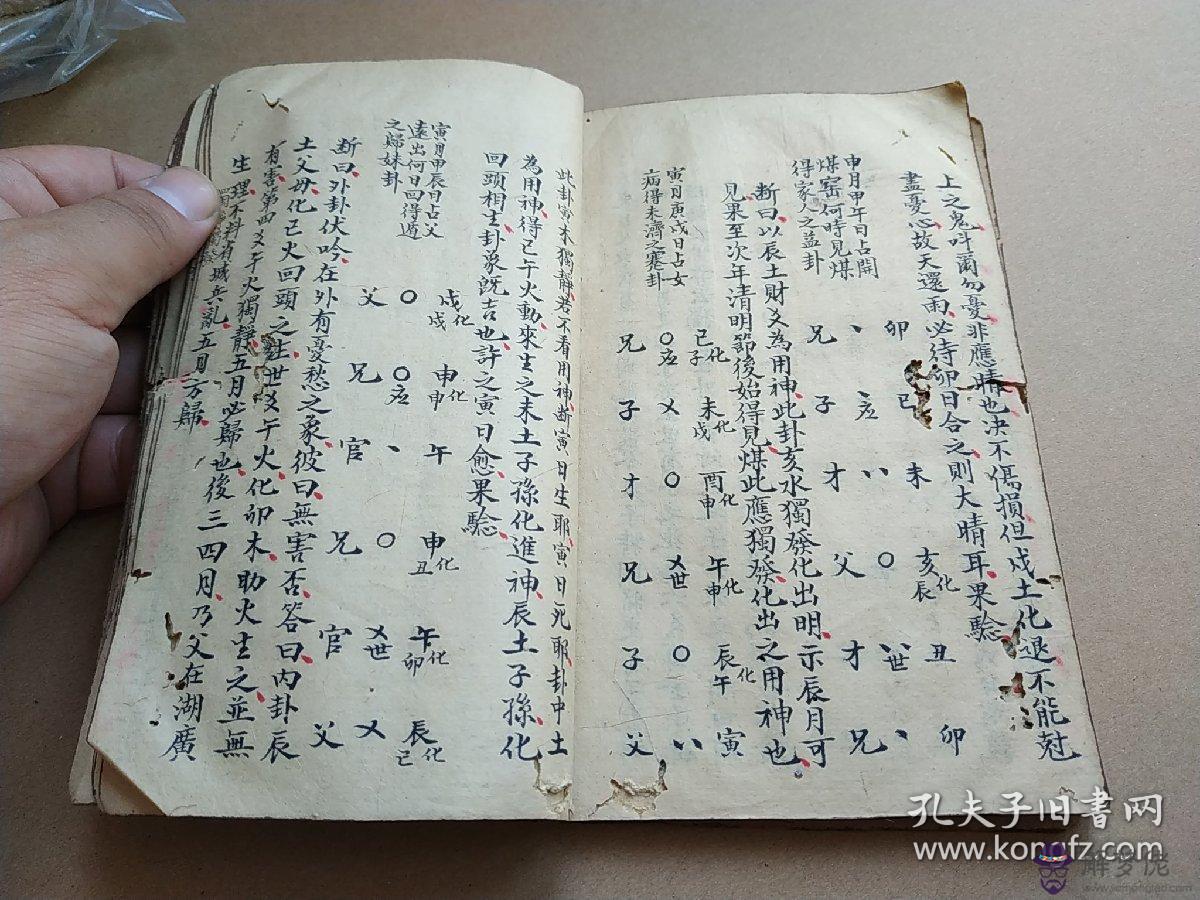 上之鬼吁爾勿憂非應晴也决不傷損但戌土化退不能尅
盡憂心故天還雨必待卯日合之則大晴耳果驗
申月甲午日占開
煤窑何時見煤
得家人之益卦
兄、卯
子、应巳
才〃未
父〇亥化辰
才〃世丑
兄、卯
断曰以辰土財爻為用神此卦亥水獨發化出明示辰月可
見果至次年清明節後始得見煤此應獨發化出之用神也
寅月庚戌日占女
病得未濟之蹇卦
兄〇应巳化子
子乂未化戌
才〇酉化申
兄乂世午化申
子〇辰化午
父〃寅
此卦寅木獨静若不看用神断寅日生耶寅日死耶卦中土
為用神得巳午火動來生之未土子孫化進神辰土子孫化
回頭相生卦象既吉也許之寅日愈果驗
寅月甲辰日占父
遠出何日回得遁
之歸妹卦
父〇戌化戌
兄〇应申化申
官、午
兄〇申化丑
官乂世午化卯
父乂辰化巳
断曰外卦伏吟在外有憂愁之象彼曰無害否答曰内卦辰
土父母化巳火回頭之生世爻午火化卯木助火生之並無
有害第四爻午火獨静五月必歸也後三四月乃父在湖廣
生理不料有城兵亂五月方歸
孔夫子旧书网
www.kongfz.com
解梦佬